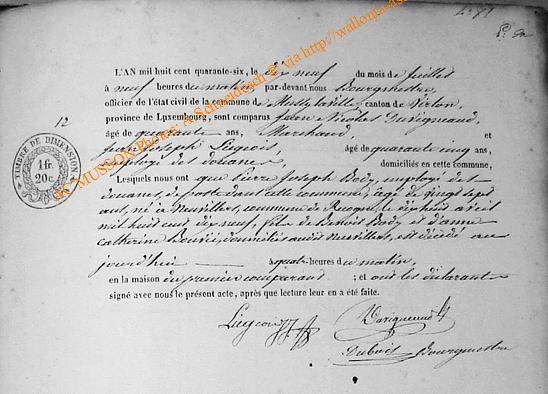 12
TIMBRE DE DIMENSION.
1 fr.
20 c.
L'AN mil huit cent quarante-six, le dix neuf du mois de juillet
à neuf heures du matin par-devant nous Bourgmestre,
officier de l'état civil de la commune de canton de Virton,
province de Luxembourg, sont comparus Jean Nicolas
âgé de quarante ans, Marchand, et
Jean Joseph âgé de quarante cinq ans,
employé des douanes, domiciliés en cette commune,
Lesquels nous ont que Pierre Joseph Body, employé des
douanes, de poste dans cette commune, âgé de vingt sept
ans, né à Neuvillers, commune de Recogne, le dix huit avril
mil huit cent dix neuf, fils de Benoit Body et d'anne
catherine domiciliés audit Neuvillers, est décédé au
jourd'hui à quatre heures du matin,
en la maison du premier comparant ; et ont les déclarants
signé avec nous le présent acte, après que lecture leur en a été faite.
Dubois Bourgmestre
MUSSON Photos: A Schneidesch @ via http://wallonia-asbl